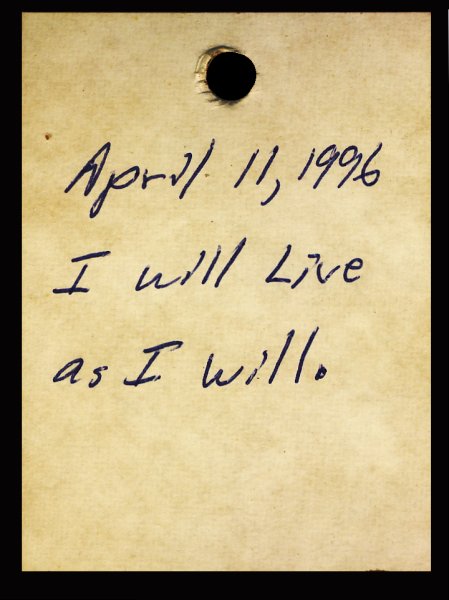 April 11, 1996
I will Live
as I will.